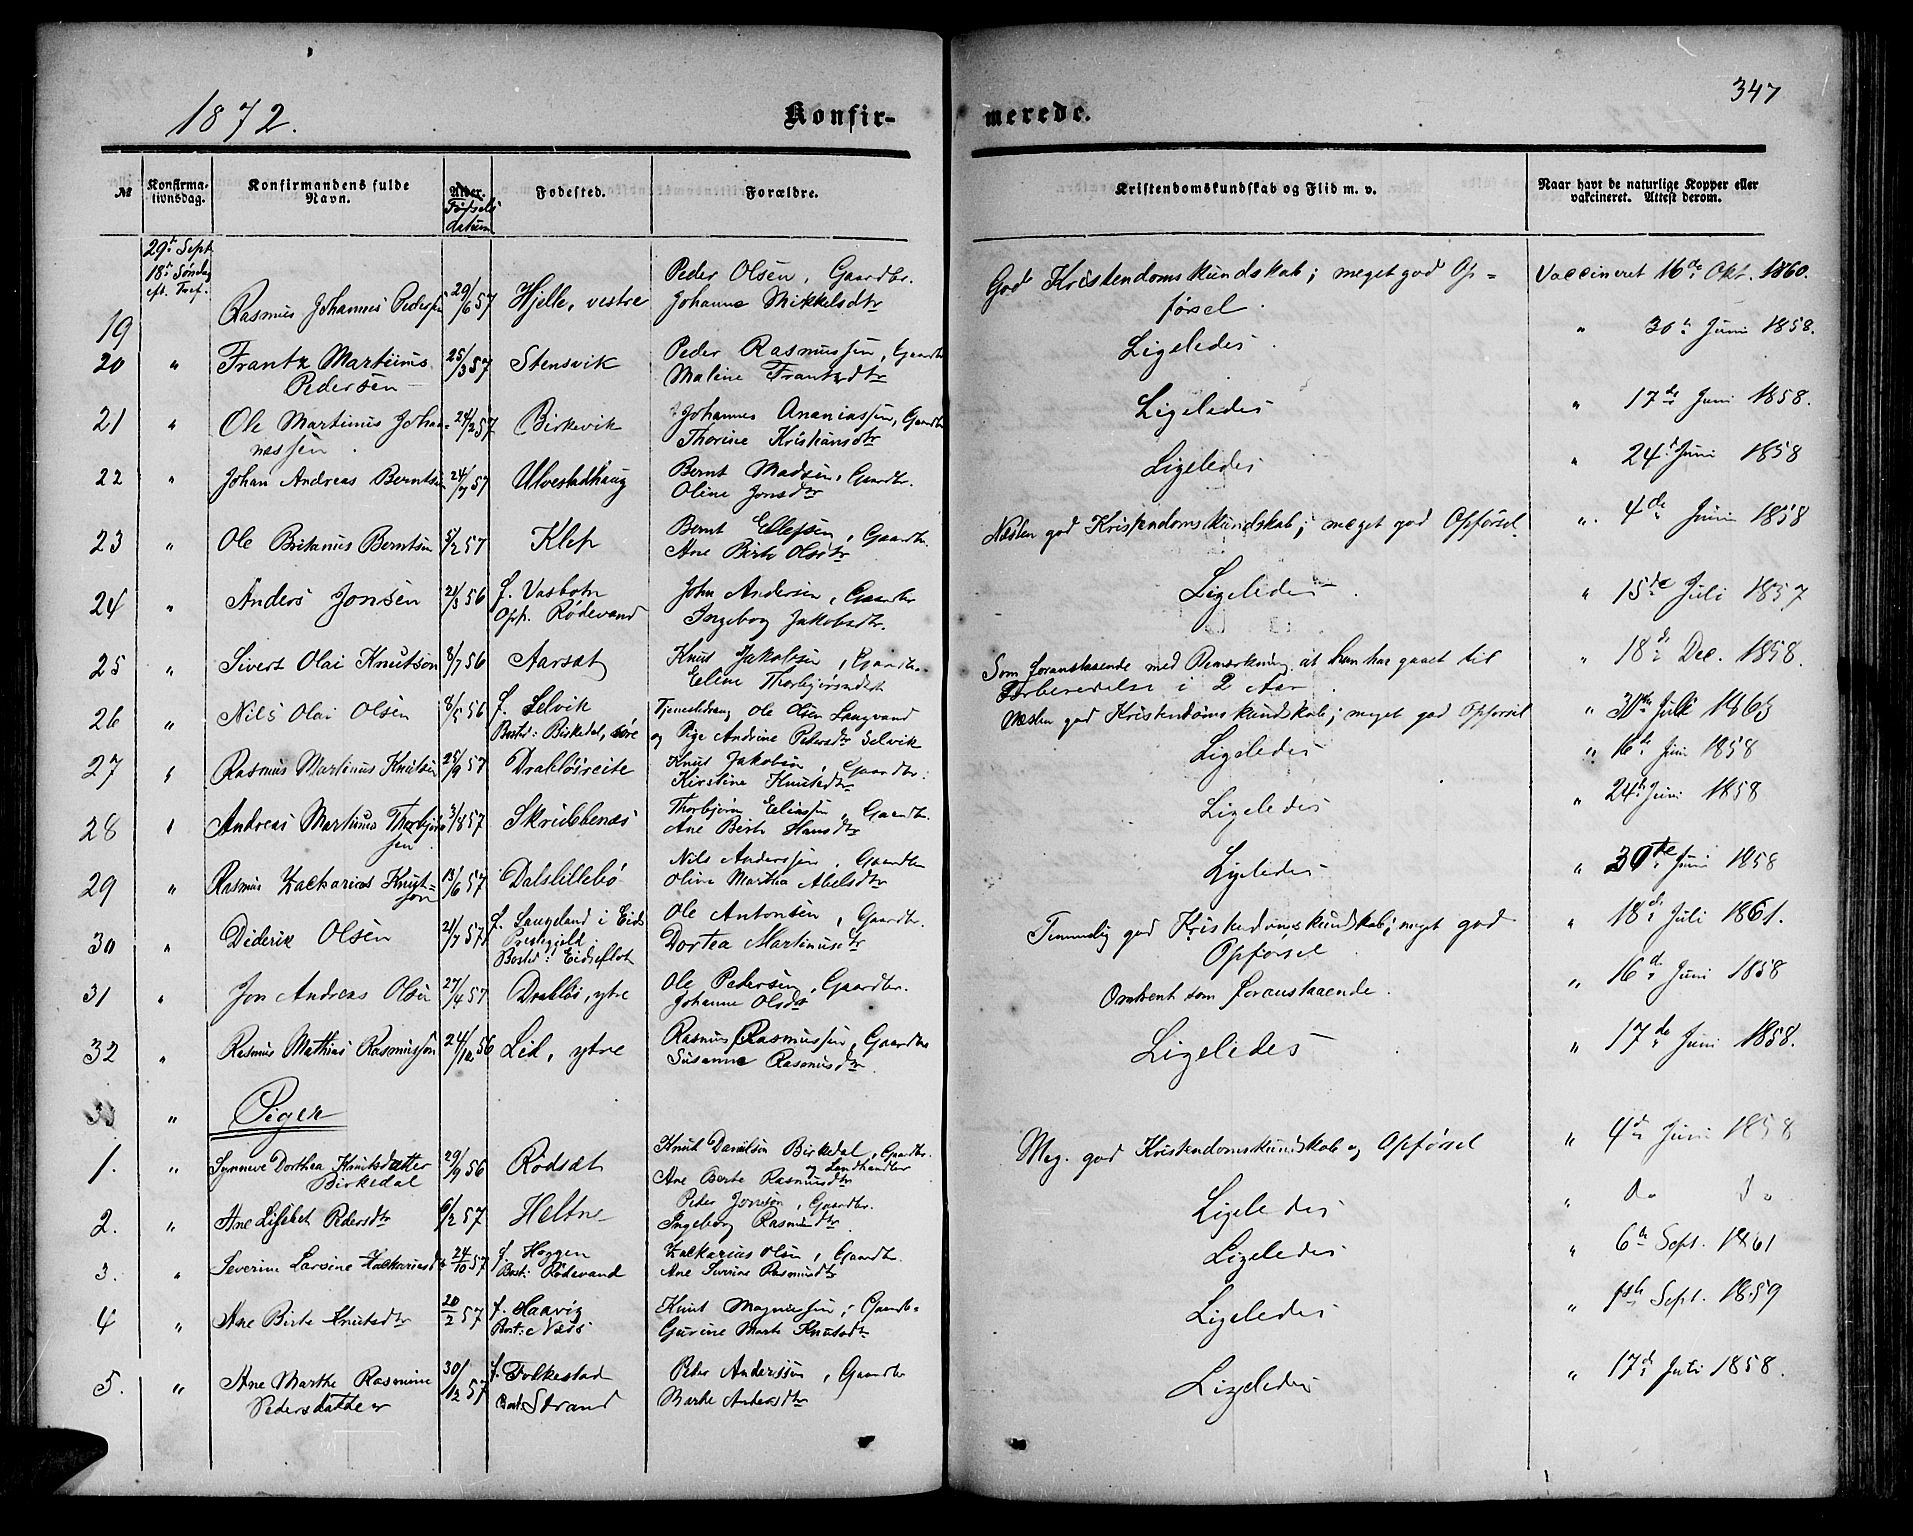 1872.
Konfir-
merede.
347
№
Konfirma-
tivnsdag.
Konfirmandens fulde
Navn.
Alder.
Fødsels
datum
Fødested.
Forældre.
Kristendomskundskab og Flid m. v.
Naar havt de naturlige Kopper eller
vakcineret. Attest derom.
29de Sept.
18de Søndag
eft. Tref.
19 Rasmus Johannes Pedersen 29/6 57 Hjelle, vestre
Peder Olsen, Gaardbr.
Johanne Mikkelsdtr
God Kristendomskundskab; meget god Op-
førsel
Vaccineret 16de Okt. 1860.
20 " Frantz Martinus
Pedersen
25/3 57 Stensvik
Peder Rasmussen, Gaardbr
Maline Frantzdtr
Ligeledes
" 30te Juni 1858.
21 " Ole Martinus Johan-
nessen
24/2 57 Birkevik
Johannes Ananiassen, Gaardbr
Thorine Kristiansdtr
Ligeledes
" 17de Juni 1858.
22 " Johan Andreas Berntsen 24/7 57 Ulvestadhaug
Bernt Madsen, Gaardbr.
Oline Jonsdtr
Ligeledes
" 24de Juni 1858
23 " Ole Britanus Berntsen 5/2 57 Klep
Bernt Ellefsen, Gaardbr.
Ane Birte Olsdtr
Næsten god Kristendomskundskab; meget god Opførsel.
" 4de Juni 1858
24 " Anders Jonsen 21/3 56 f. Vasbotn
Oph. Rødevand
John Andersen, Gaardbr
Ingeborg Jakobsdtr.
Ligeledes
" 15de Juli 1857
25 " Sivert Olai Knutson 8/7 56 Aarsæt
Knut Jakobsen, Gaardbr.
Eline Thorbjørnsdtr
Som foranstaaende med Bemærkning at han har gaaet til
Forberedelse i 2 Aar.
" 18de Dec. 1858.
26 " Nils Olai Olsen 8/5 56 f. Selvik
Bosted: Birkedal, søre
Tjenestedreng Ole Olsen Langvand
og Pige Andrine Pedersdtr Selvik
Næsten god Kristendomskundskab; meget god Opførsel
" 30te Juli 1865
27 " Rasmus Martinus Knutsen 25/9 57 Drabløsreite
Knut Jakobsen, Gaardbr.
Kirstine Knutsdtr
Ligeledes
" 16de Juni 1858
28 " Andreas Martinus Thorbjørn-
sen
3/8 57 Skrubbenæs
Thorbjørn Eliassen, Gaardbr.
Ane Birte Hansdtr
Ligeledes
" 24de Juni 1858
29 " Rasmus Zackarias Knut-
son
13/6 57 Dalslillebø
Nils Anderssen, Gaardbr
Oline Martha Abelsdtr
Ligeledes
" 30te Juni 1858
30 " Diderik Olsen 21/7 57 f. Langeland i Eids
Prestegjeld
Bosted: Eidseflot
Ole Antonsen, Gaardbr.
Dortea Martinusdtr
Temmelig god Kristendomskundskab; meget god
Opførsel
" 18de Juli 1861.
31 " Jon Andreas Olsen 27/4 57 Drabløs, ytre
Ole Pedersen, Gaardbr.
Johanne Olsdtr
Omtrent som foranstaaende.
" 16de Juni 1858
32 " Rasmus Mathias Rasmusson 24/12 56 Lid, ytre
Rasmus Rasmussen, Gaardbr
Susanne Rasmusdtr
Ligeledes
" 17de Juni 1858.
33 " Piger
1. " Synneve Dorthea Knutsdatter
Birkedal
29/9 56 Rødsæt
Knut Danielsen Birkedal, Gaardbr.
og Landhandler
Ane Berte Rasmusdtr
Meg. god Kristendomskundskab og Opførsel
" 4de Juni 1858
2. " Ane Lisebet Pedersdtr 6/2 57 Heltne
Peder Jonsen, Gaardbr.
Ingeborg Rasmusdtr
Ligeledes
" do do
3. " Severine Larsine Zackariasdtr 24/10 57 f. Haggen
Bost: Rødevand
Zackarias Olsen, Gaardbr.
Ane Severine Rasmusdtr
Ligeledes
" 6te Sept. 1861
4 " Ane Birte Knutsdtr 20/2 57 f. Haavig
Bost: Næs
Knut Magnussen, Gaardbr
Gurine Marte Knutsdtr
Ligeledes
" 1ste Sept. 1859
5. " Ane Marthe Rasmine
Pedersdatter
30/12 57 f. Folkestad
Bost Strand
Peder Anderssen, Gaardbr
Berte Andersdtr
Ligeledes
" 17de Juli 1858.